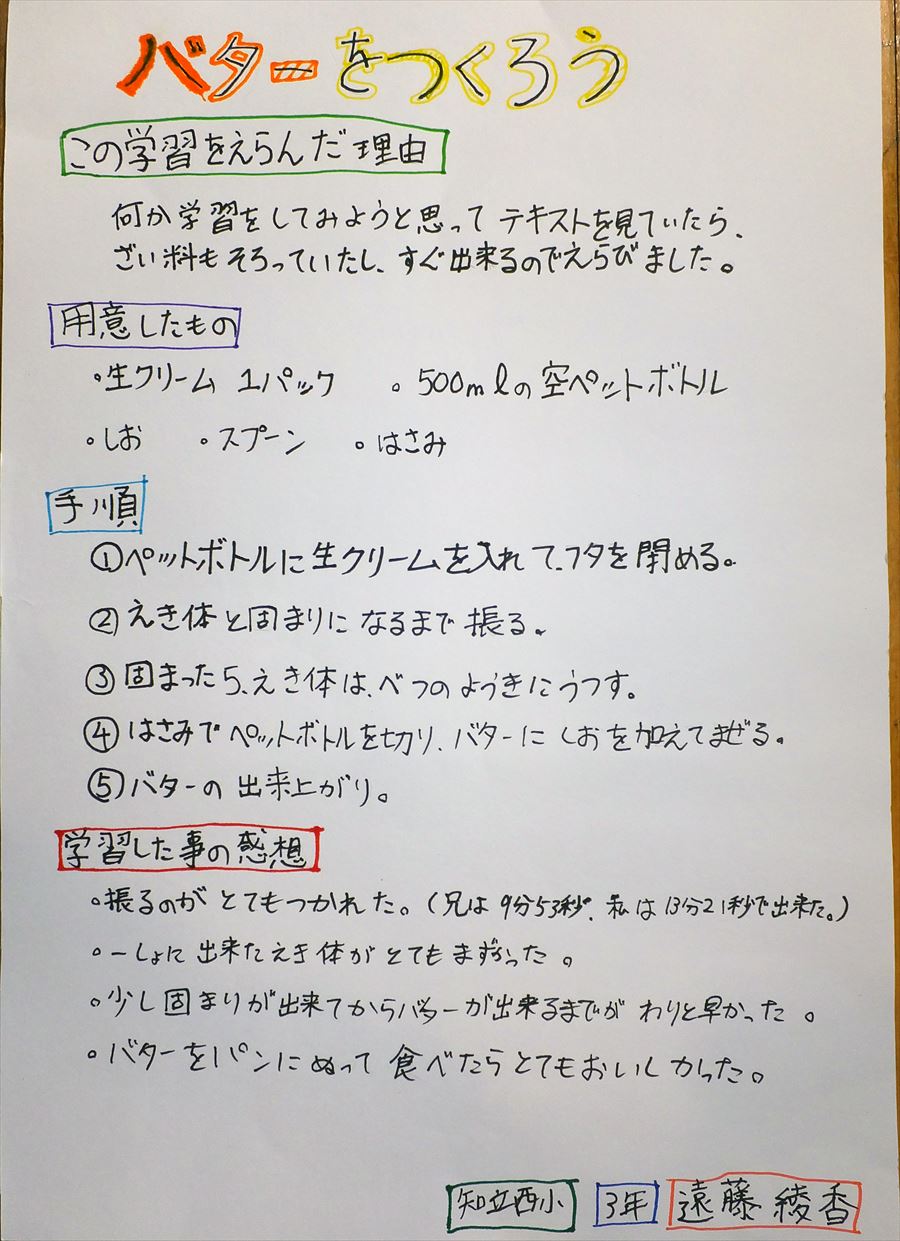 バターをつくろう
この学習をえらんだ理由
何か学習をしてみようと思ってテキストを見ていたら、
ざい料もそろっていたし、すぐ出来るのでえらびました。
用意したもの
・生クリーム 1パック ・500mlの空ペットボトル
・しお ・スプーン ・はさみ
手順
①ペットボトルに生クリームを入れて、フタを閉める。
②えき体と固まりになるまで振る。
③固まったら、えき体は、べつのようきにうつす。
④はさみでペットボトルを切り、バターにしおを加えてまぜる。
⑤バターの出来上がり。
学習した事の感想
・振るのがとてもつかれた。(兄は9分53秒、私は13分21秒で出来た。)
・一しょに出来たえき体がとてもまずかった。
・少し固まりが出来てからバターが出来るまでがわりと早かった。
・バターをパンにぬって食べたらとてもおいしかった。
知立西小 3年 遠藤綾香